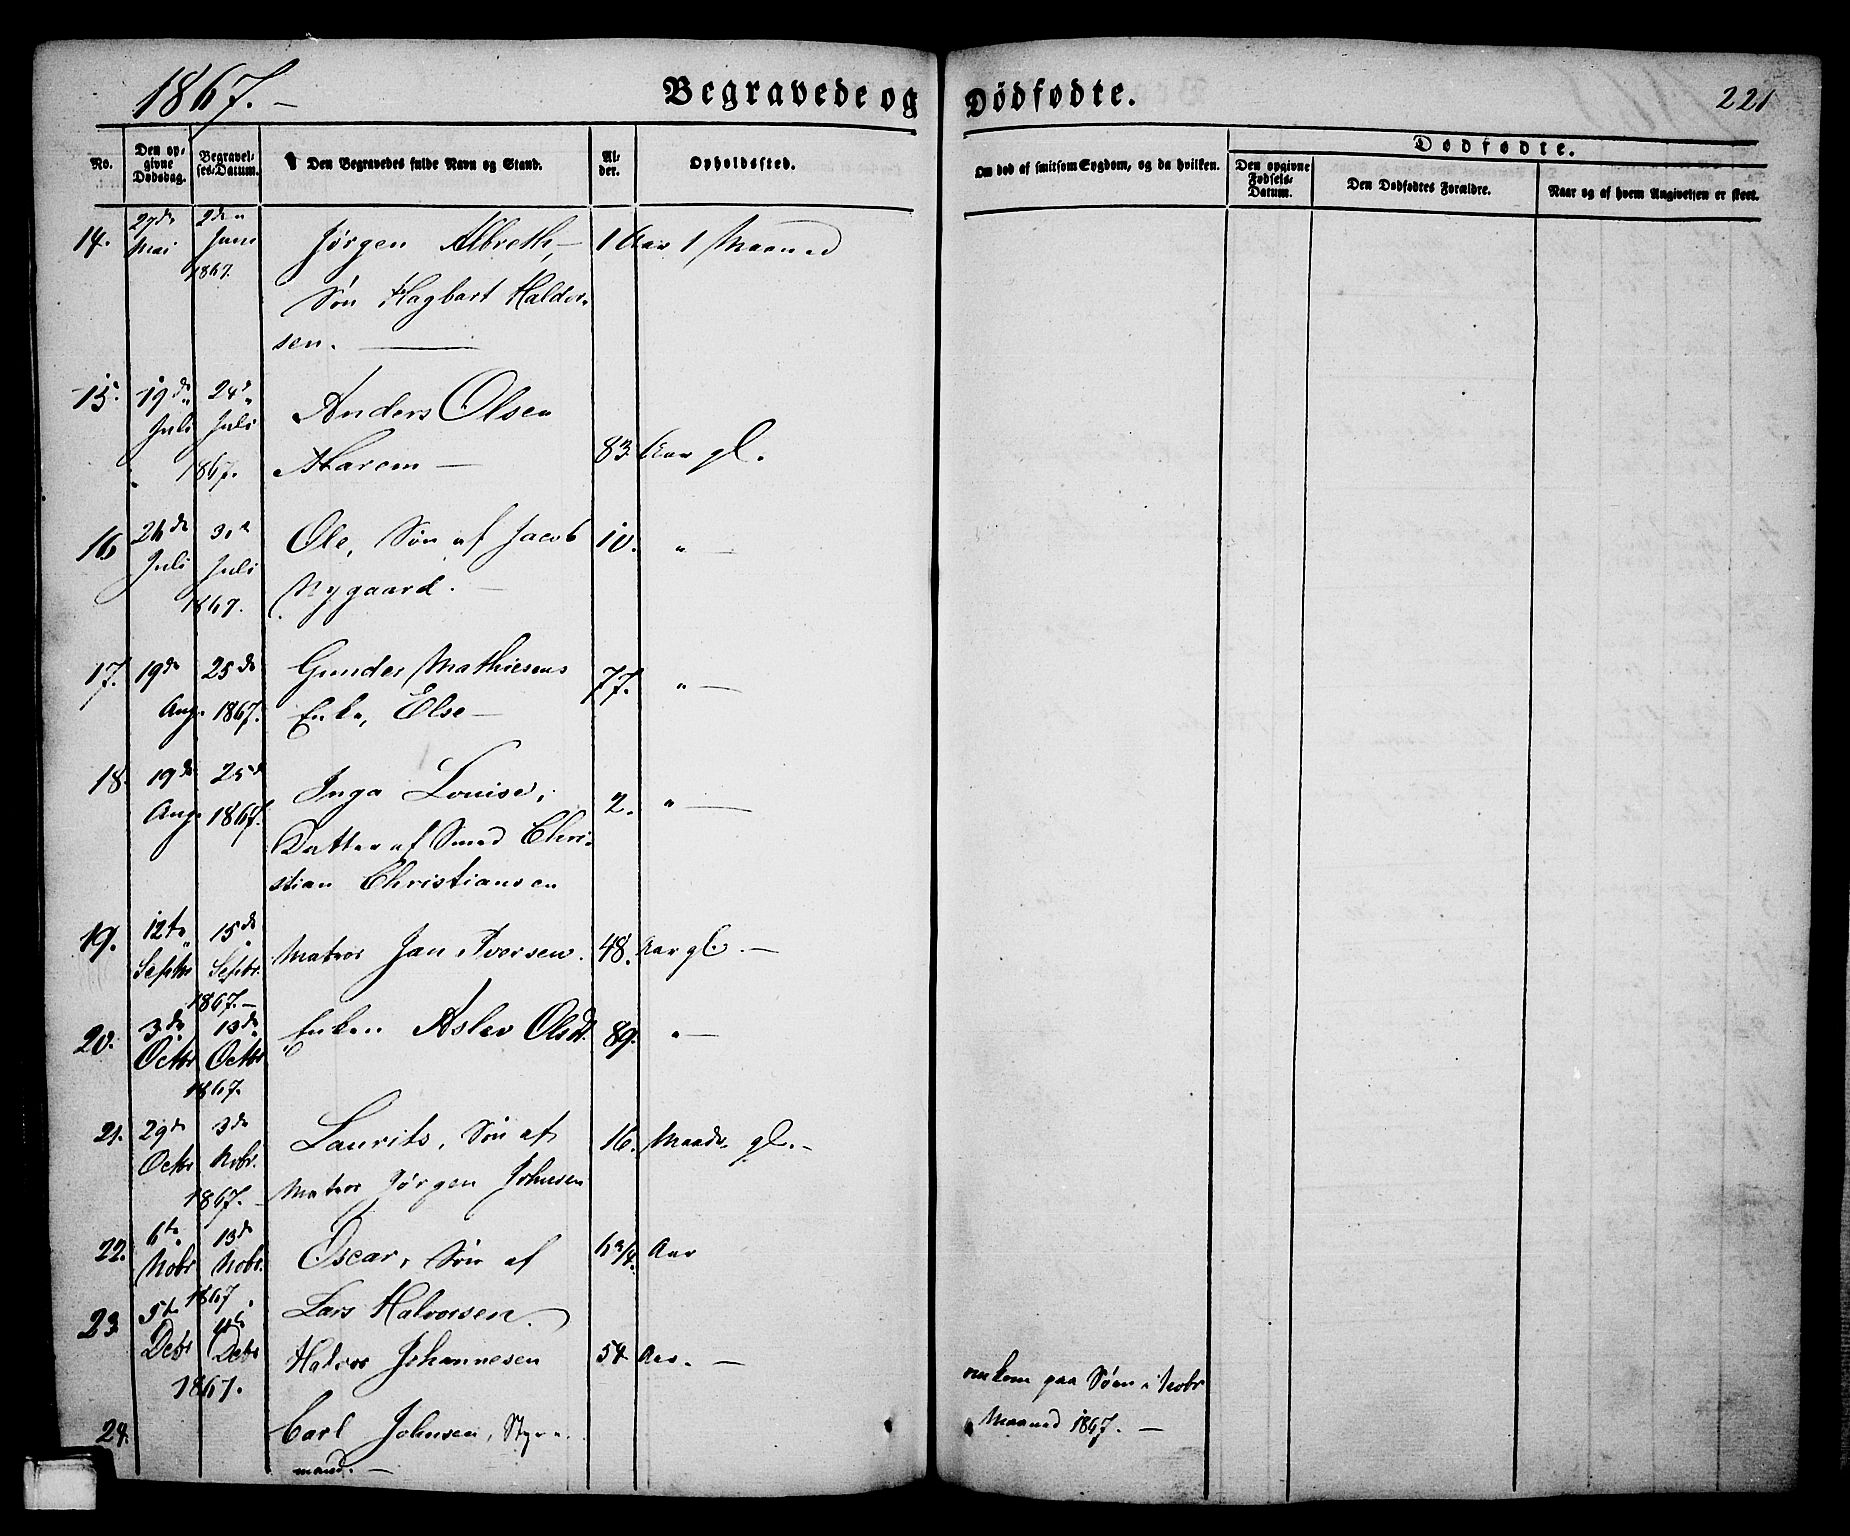 1867. –
Begravede og Dødfødte.
221
No.
Den opgivne Dødsdag.
Begravelses-Datum.
Den Begravedes fulde Navn og Stand.
Alder.
Opholdssted.
Om død af smitsom Sygdom, og da hvilken.
Dødfødte.
Den opgivne Fødsels-Datum.
Den Dødfødtes Forældre.
Naar og af hvem Angivelsen er skeet.
14. 27de 2den Jørgen Albreth, – 1 Aar 1 Maaned
Mai Juni
1867. Søn Hagbart Halder-
sen. —
15. 19de 24de Anders Olsen
Juli Juli
1867. Harem – 83 Aar gl.
16 26de 30te Ole, Søn af Jacob 10. " –
Juli Juli
1867. Nygaard. –
17. 19de 25de Gunder Mathiesens 77. " –
Aug. 1867. Enke, Else –
18. 19de 25de Inga Louise, 2. " –
Aug. 1867. Datter af Smed Chri-
stian Christiansen
19. 12te 15de Matros Jan Iversen. 48. Aar gl. –
Septbr Septbr.
1867. –
20. 3de 13de Enken Aslev Olsdt. 89. " –
Octbr Octbr
1867.
21. 29de 3de Laurits, Søn af 16. Maads. gl. –
Octbr Nobr.
1867. – Matros Jørgen Johnsen
22. 6te 13de Oscar, Søn af 6 3/4. Aar
Nobr Nobr.
1867. Lars Halvorsen.
23 5te 11te
Debr Debr Halvor Johannesen 54 Aar. –
1867.
24. Carl Johnsen, Styr-
mand. –
omkom paa Søen i Nobr
Maaned 1867. –